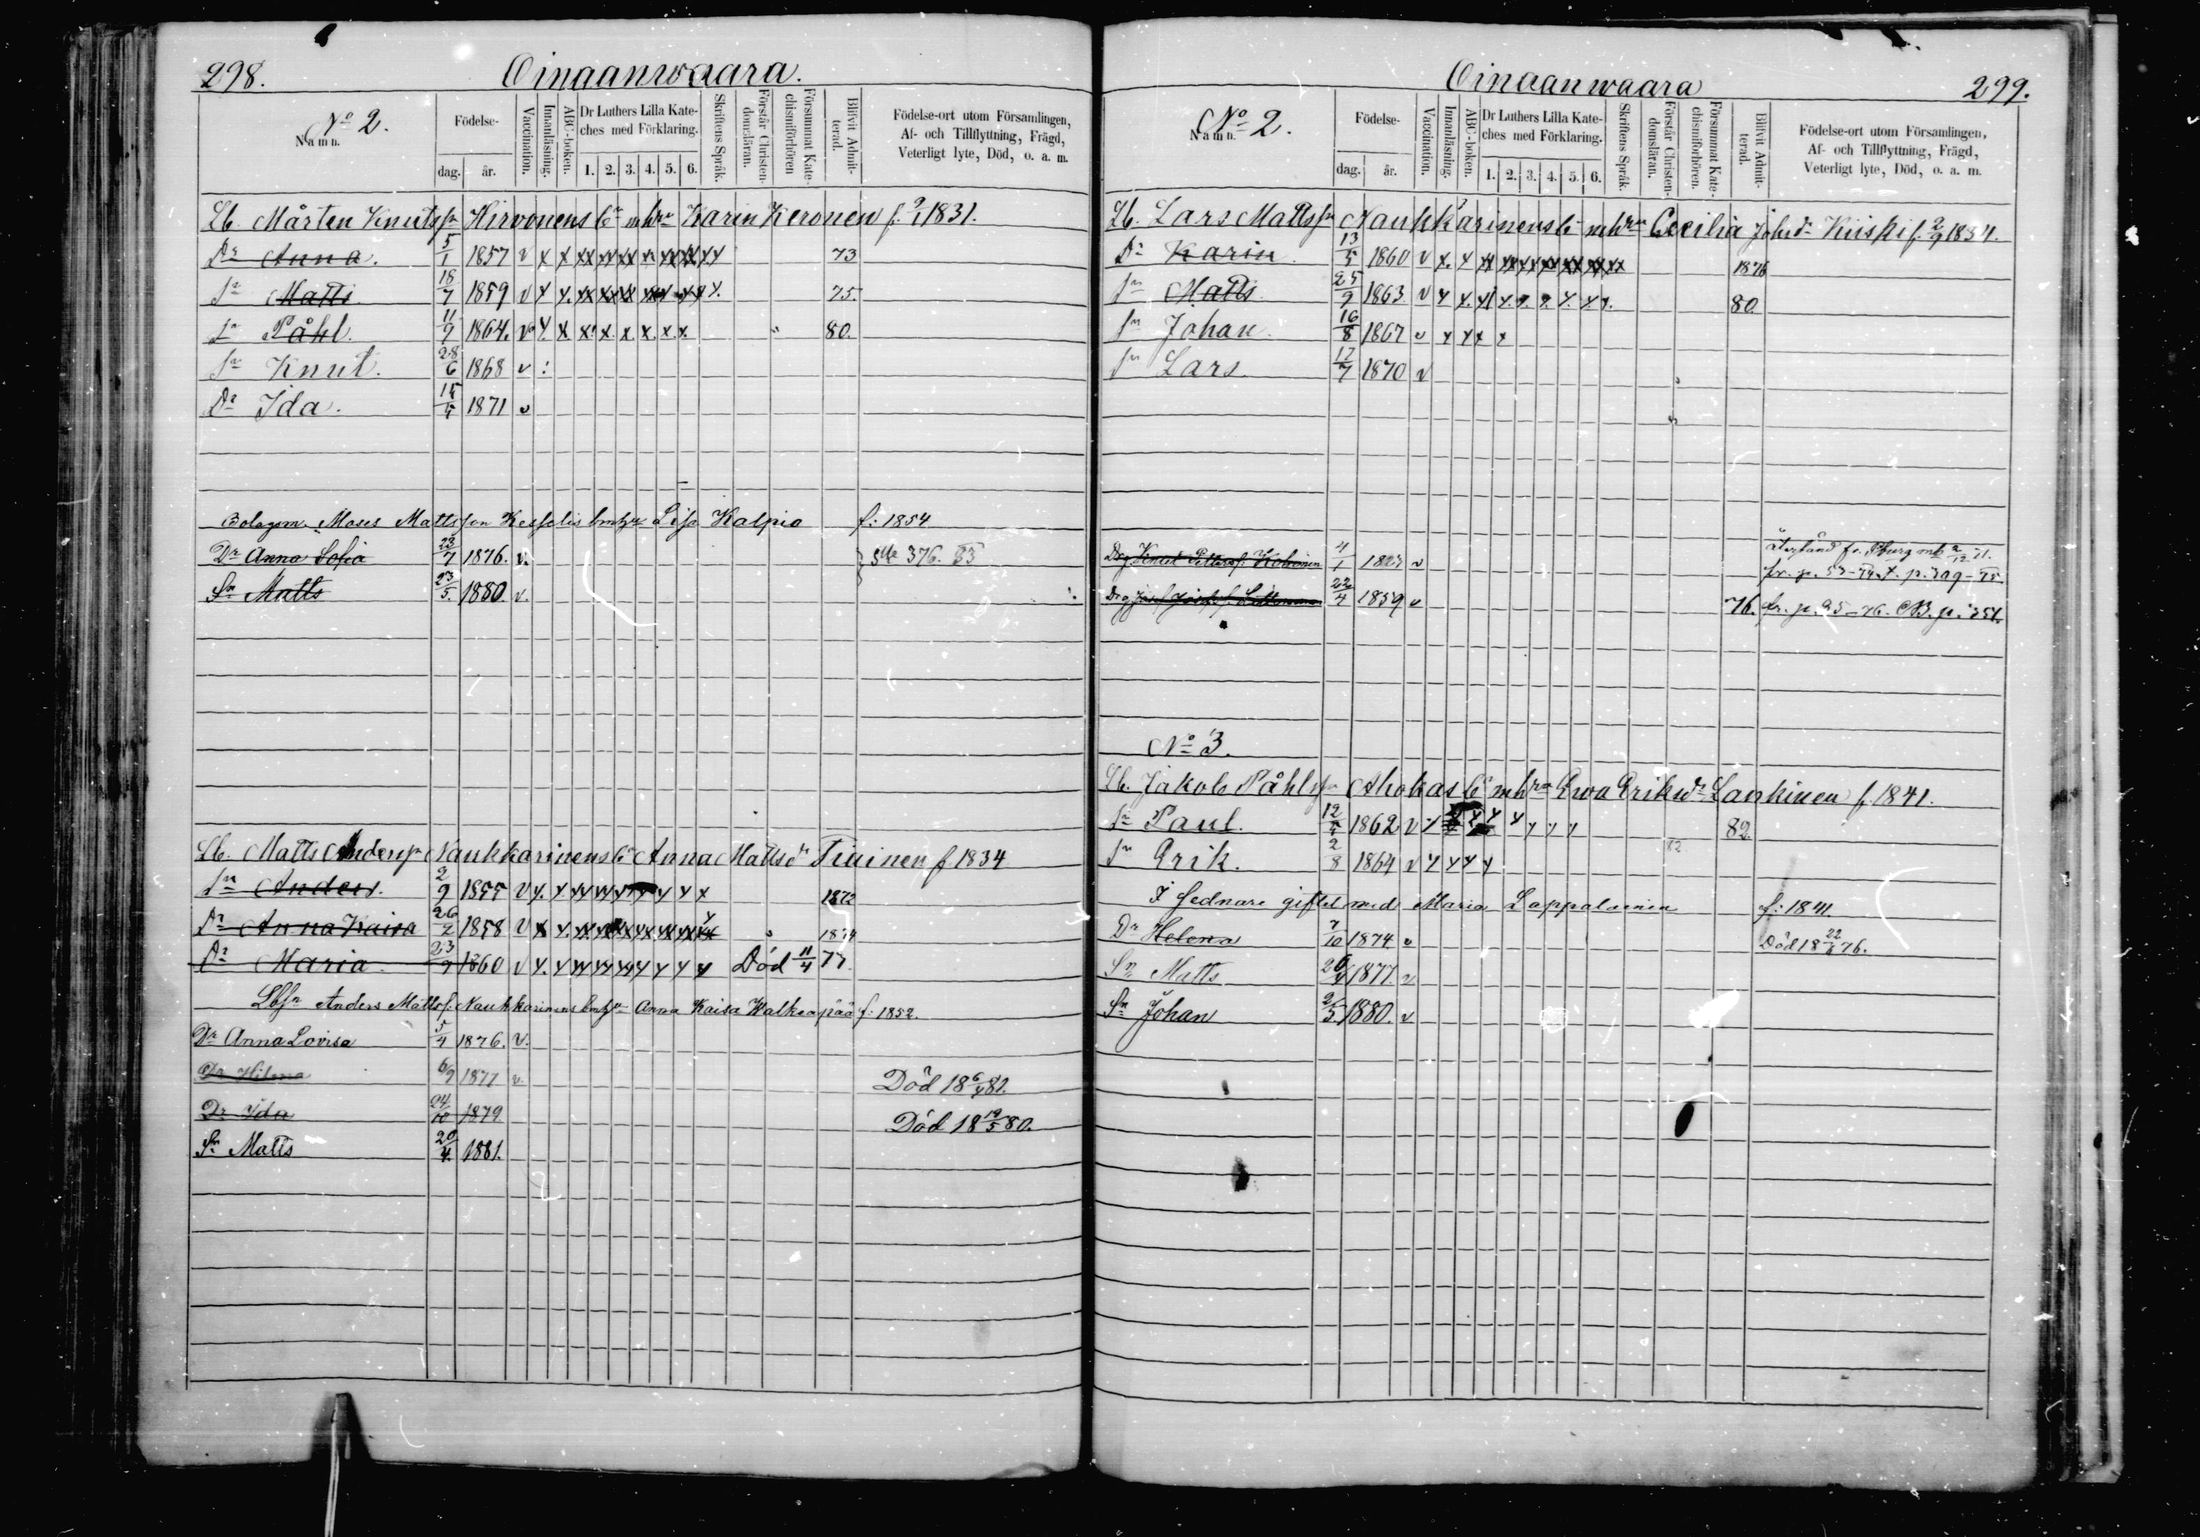 298.
Oinaanwaara.
No 2.
Namn.
Födelse-
dag.
år.
Vaccination.
Innanläsning.
ABC-boken.
Dr Luthers Lilla Kate-
ches med Förklaring.
1. 2. 3. 4. 5. 6.
Skriftens Språk.
Förstår Christen-
domsläran.
Försummat Kate-
chismiförhören
Blifvit Admit-
terad.
Födelse-ort utom Församlingen,
Af- och Tillflyttning, Frägd,
Veterligt lyte, Död, o. a. m.
Lb. Mårten Knutssn Hirvonens br mhru Karin Keronen f. 2/1 1831.
Dr Anna. 5/1 1857 v x x xx xx xx xx xx xx xx 73
Sn Matts 18/7 1859 v x x. xx xx xx xx x x x. 75.
Sn Påhl. 11/9 1864. v x. x x. x. x x. x. x 80.
Sn Knut. 28/6 1868 v :
Dr Ida. 15/5 1871 v
Bolagsm. Moses Mattsson Kesselis hmhru Lisa Kalpio f: 1854
Dr Anna Sofia 23/7 1876. v. } Sde 376. 83
Sn Matts 23/5. 1880. v.
Lb. Matts Anderssn Naukkarinens br Anna Mattsdr Tiainen f 1834
Sn Anders. 2/9 1855 v x. x xx xx xx x x x x 1872
Dr Anna Kaisa 26/2 1858 v x x. xx xx xx xx xx xx 1874
Dr Maria 23/9 1860 v x. x xx xx xx x x x x Död 11/4 77.
Lbsn Anders Mattss. Naukkarinens hmhru Anna Kaisa Walkeapää f: 1852.
Dr Anna Lovisa 5/4 1876. v.
Dr Hilma 6/9 1877 v. Död 18 6/4 81.
Dr Ida 24/10 1879 Död 18 19/5 80.
Sn Matts 20/4 1881.
Oinaanwaara
299.
No 2.
Namn.
Födelse-
dag.
år.
Vaccination.
Innanläsning.
ABC-boken.
Dr Luthers Lilla Kate-
ches med Förklaring.
1. 2. 3. 4. 5. 6.
Skriftens Språk.
Förstår Christen-
domsläran.
Försummat Kate-
chismiförhören.
Blifvit Admit-
terad.
Födelse-ort utom Församlingen,
Af- och Tillflyttning, Frägd,
Veterligt lyte, Död, o. a. m.
Lb. Lars Mattssn Naukkarinens br mhru Cecilia Johsdr Kiiski f. 2/9 1834.
Dr Karin 13/5 1860 v x. x xx xx xx xx xx xx xx 1876
Sn Matts 25/9 1863 v x x. x x. x. x. x. x x. 80.
Sn Johan 16/8 1867 v x x x x
Sn Lars. 17/7 1870 v
Drg Knut Petterss. Kohonen 4/1 1823 v
fr. p. 53-74. T. p. 309-75.
22/4 1859 v 76. fr. p. 95-76. p. 351.
No 3.
Lb. Jakob Påhlssn Ahokas br mhru Ewa Eriksdr Lankinen f. 1841.
Sn Paul. 12/5 1862 v x x x x x x x x 82.
Sn Erik. 2/8 1864 v x x x x 82
I sednare giftet med Maria Lappalainen f: 1841.
Dr Helena 7/10 1874 v Död 18 22/6 76.
Sn Matts 26/4 1877. v
Sn Johan 21/5 1880. v